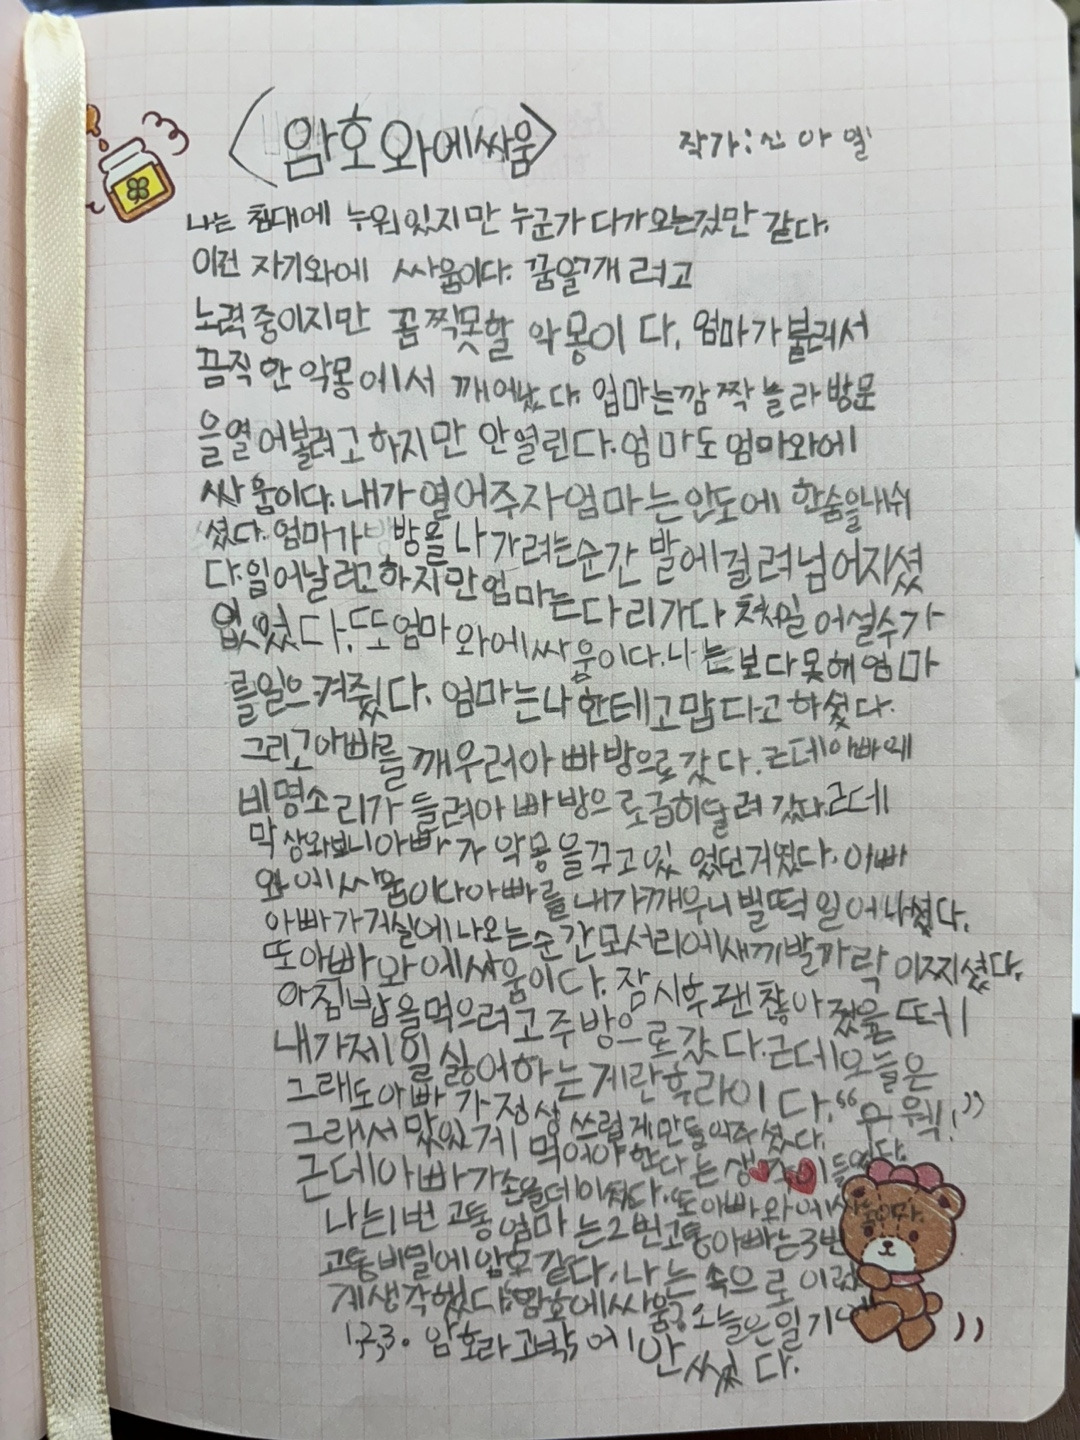 <암호와에싸움>
작가: 신아열
나는 침대에 누워있지만 누군가 다가오는것만 같다.
이건 자기와에 싸움이다. 꿈을깨려고
노력중이지만 꼼짝못할 악몽이다. 엄마가불러서
끔직한악몽에서 깨어났다 엄마는깜짝놀라방문
을열어볼려고하지만 안열린다.엄마도엄마와에
싸움이다.내가열어주자엄마는안도에 한숨을내쉬
셨다.엄마가 방을나가려는순간발에걸려넘어지셨
다.일어날려고하지만엄마는다리가다쳐일어설수가
없었다.또엄마와에싸움이다.나는보다못해엄마
를일으켜줬다.엄마는나한테고맙다고하셨다.
그리고아빠를깨우러아빠방으로갔다.근데아빠에
비명소리가들려아빠방으로급히달려갔다.근데
막상와보니아빠가악몽을꾸고있었던거였다.아빠
와에싸움이다아빠를내가깨우니벌떡일어나셨다.
아빠가거실에나오는순간모서리에새끼발까락이찌셨다.
또아빠와에싸움이다.잠시후괜찮아졌을때
아침밥을먹으려고주방으로갔다.근데오늘은
내가제일싫어하는계란후라이다.“우웩!”
그래도아빠가정성쓰럽게만들어주셨다.
그래서맜있게먹어야한다는생각이들었다.
근데아빠가손을데이셨다.또아빠와에싸움이다.
나는1번고통엄마는2번고통아빠는3번
고통비밀에암호같다.나는속으로이렇
게생각했다암호에싸움?오늘은일기에
1,2,3.암호라고밖에안썼다.